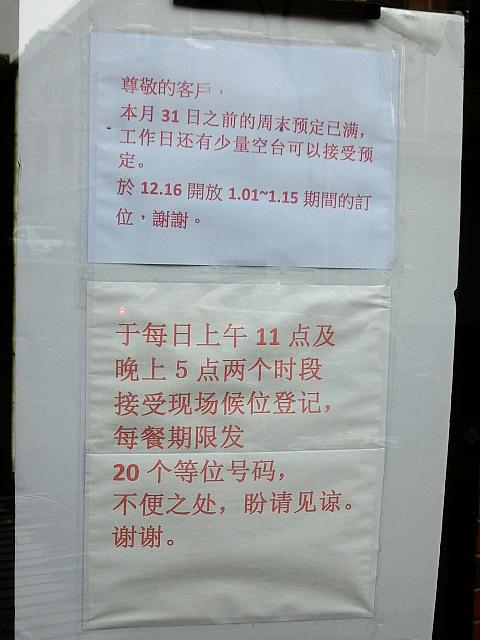 尊敬的客戶，
本月 31 日之前的周末预定已满，
工作日还有少量空台可以接受预
定。
於 12.16 開放 1.01~1.15 期間的訂
位，謝謝。
于每日上午 11 点及
晚上 5 点两个时段
接受现场候位登记，
每餐期限发
20 个等位号码，
不便之处，盼请见谅。
谢谢。